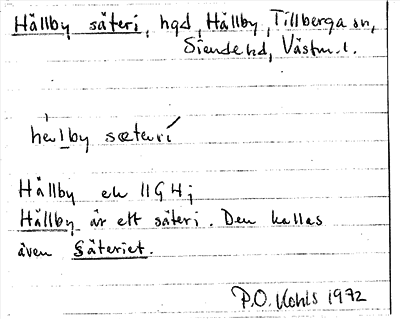 Hällby säteri, hgd, Hällby, Tillberga sn,
Siende hd, Västm. l.
hèl̠by sæterí
Hällby ek 11G4j
Hällby är ett säteri. Den kallas
även Säteriet.
P.O. Kohls 1972